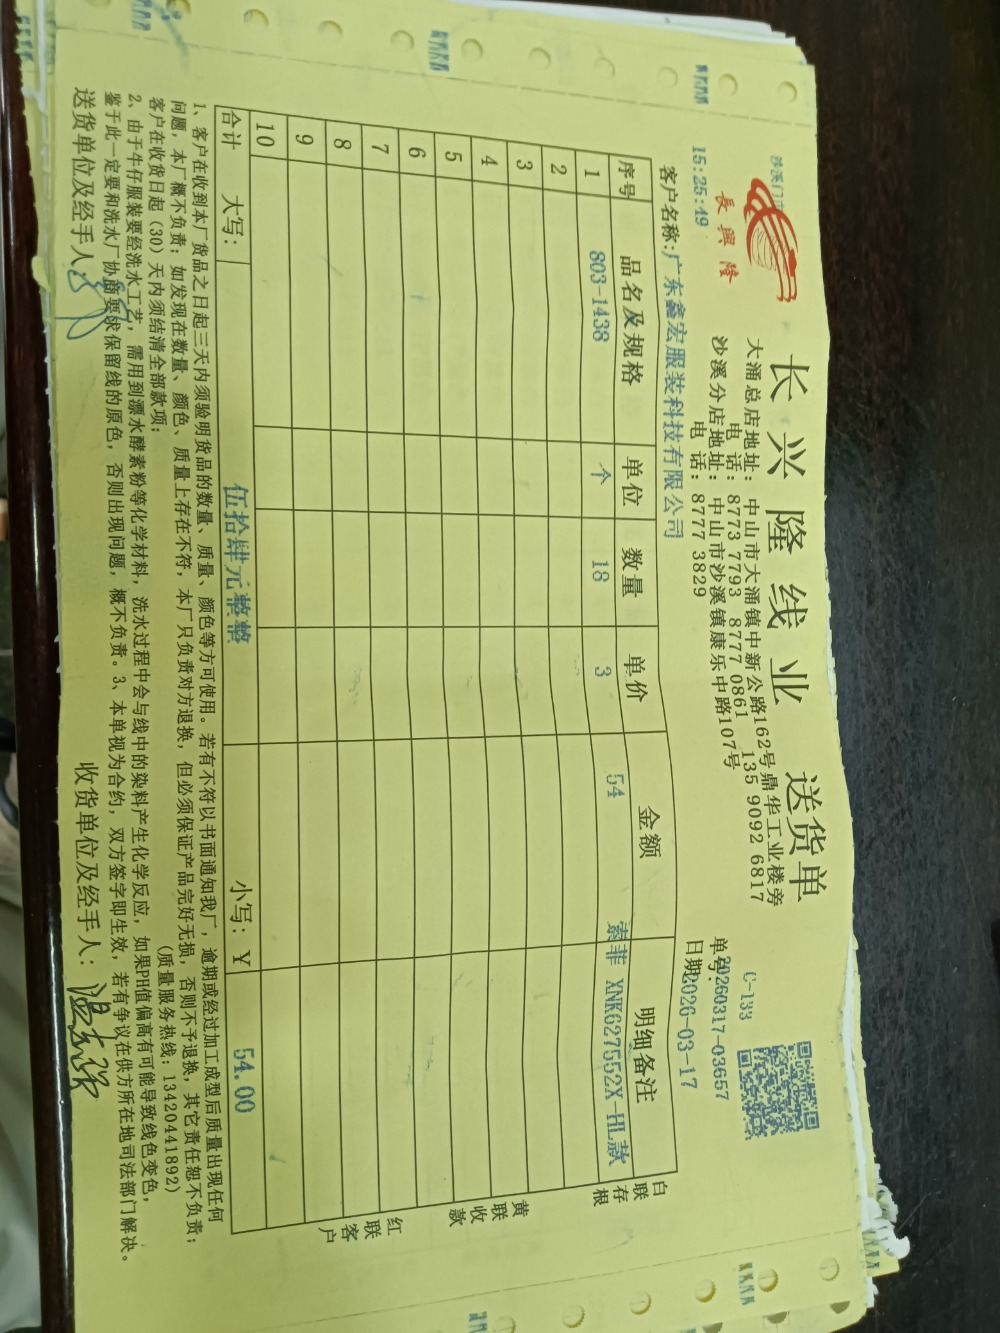 長興隆
长兴隆线业 送货单
C-133
沙溪门市
大涌总店地址：中山市大涌镇中新公路162号鼎华工业楼旁
电话：8773 7793 8777 0861 135 9092 6817
沙溪分店地址：中山市沙溪镇康乐中路107号
电话：8777 3829
单号：20260317-03657
15:25:49
日期：2026-03-17
客户名称：广东鑫宏服装科技有限公司
序号 品名及规格 单位 数量 单价 金额 明细备注
1 803-1438 个 18 3 54 索菲 XNK627552X-HL款
2
3
4
5
6
7
8
9
10
合计 大写： 伍拾肆元整整 小写：￥ 54.00
白联存根
黄联收款
红联客户
1、客户在收到本厂货品之日起三天内须验明货品的数量、质量、颜色等方可使用。若有不符以书面通知我厂，逾期或经过加工成型后质量出现任何
问题，本厂概不负责；如发现在数量、颜色、质量上存在不符，本厂只负责对方退换，但必须保证产品完好无损，否则不予退换，其它责任恕不负责；
客户在收货日起（30）天内须结清全部款项；
（质量服务热线：13420441892）
2、由于牛仔服装要经洗水工艺，需用到漂水酵素粉等化学材料，洗水过程中会与线中的染料产生化学反应，如果PH值偏高有可能导致线色变色，
鉴于此一定要和洗水厂协商要求保留线的原色，否则出现问题，概不负责。3、本单视为合约，双方签字即生效，若有争议在供方所在地司法部门解决。
送货单位及经手人：
收货单位及经手人：